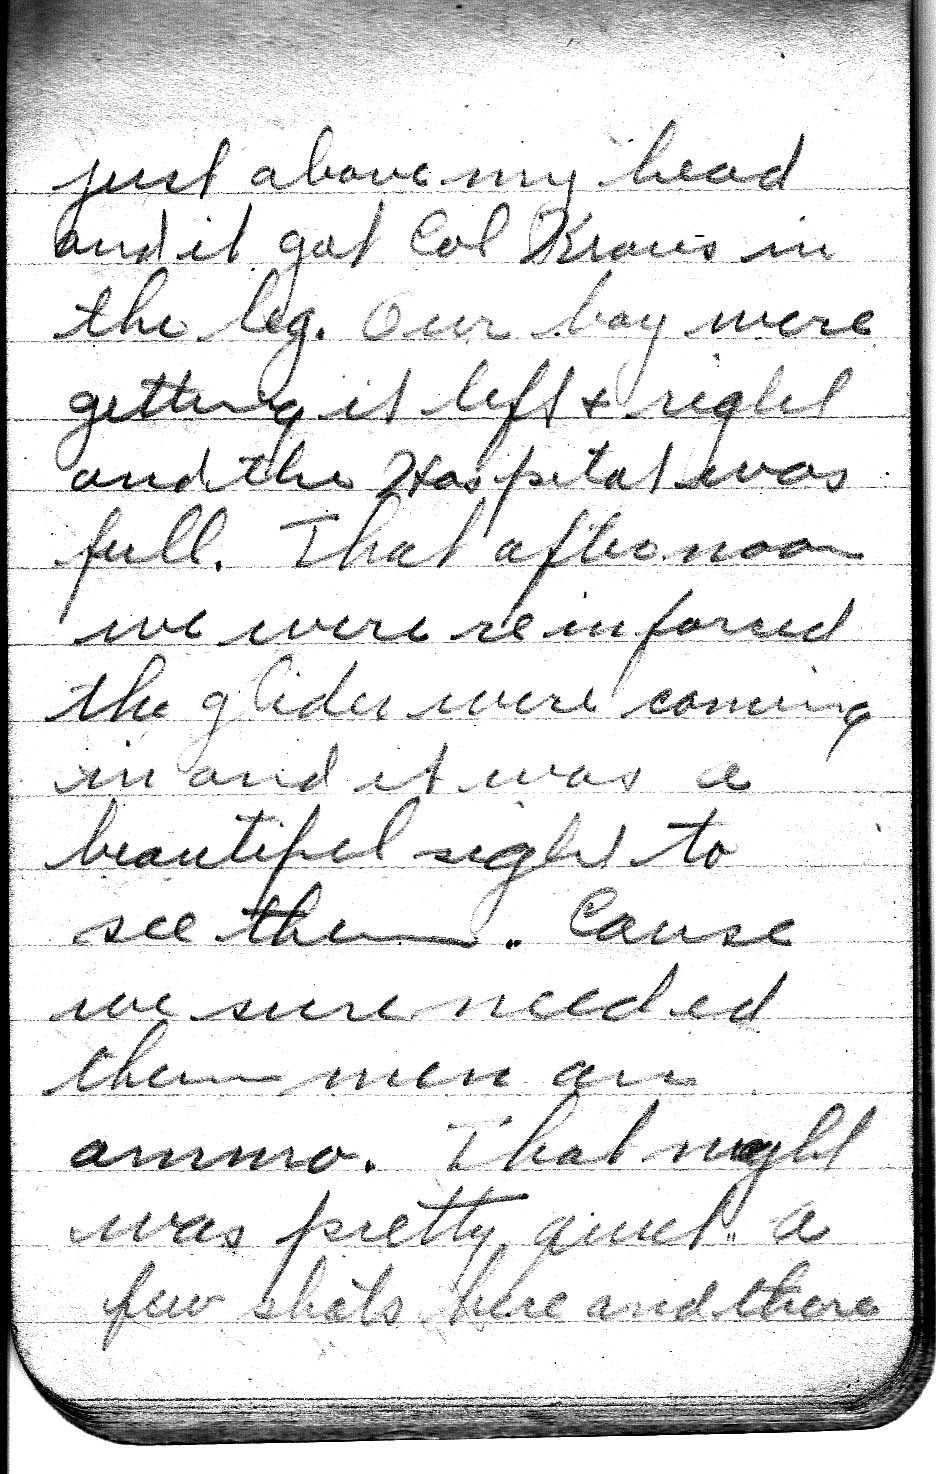 just above my head
and it got Col Kraus in
the leg. Our boy were
getting it left + right
and the Hospital was
full. That afternoon
we were reinforced
the glider were coming
in and it was a
beautiful sight to
see them. Cause
we sure needed
them men an
ammo. That night
was pretty quiet. a
few shots here and there